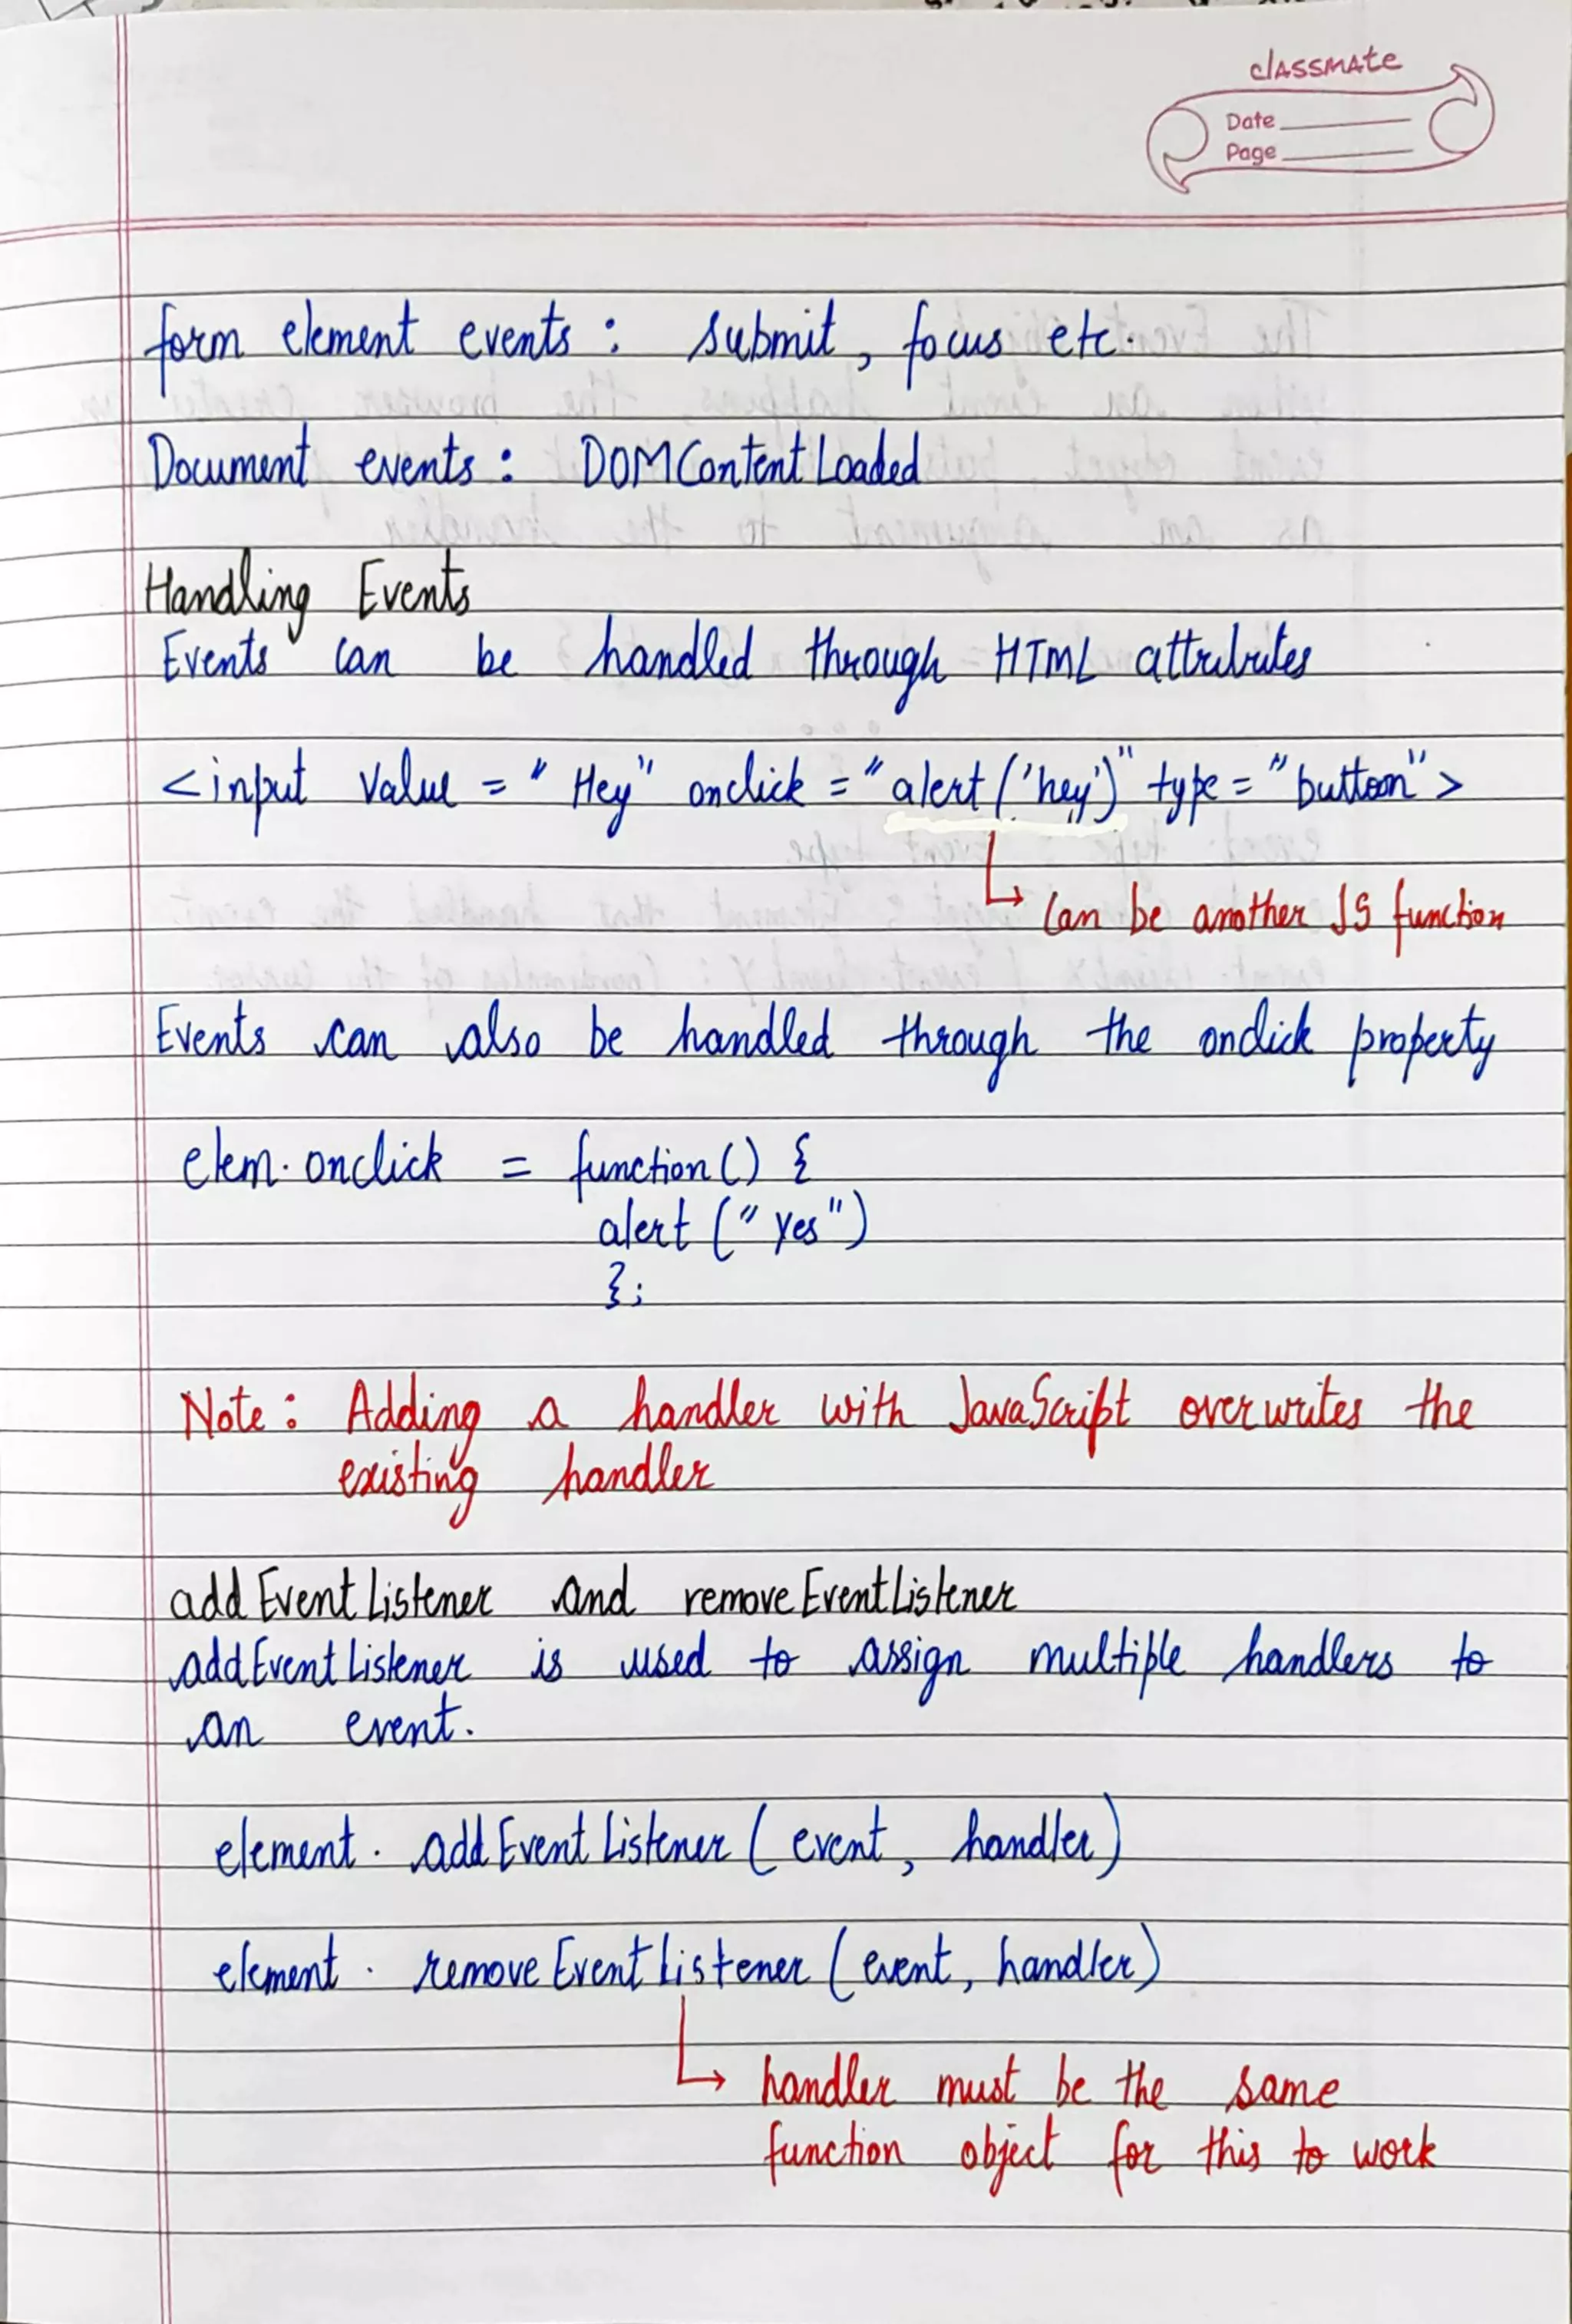 classmate
Date
Page
form element events : submit, focus etc.
Document events : DOMContentLoaded
Handling Events
Events can be handled through HTML attributes
<input value = "Hey" onclick = "alert('hey')" type = "button">
can be another JS function
Events can also be handled through the onclick property
elem.onclick = function() {
alert("yes")
};
Note : Adding a handler with JavaScript overwrites the
existing handler
addEventListener and removeEventListener
addEventListener is used to assign multiple handlers to
an event.
element. addEventListener(event, handler)
element. removeEventListener(event, handler)
handler must be the same
function object for this to work